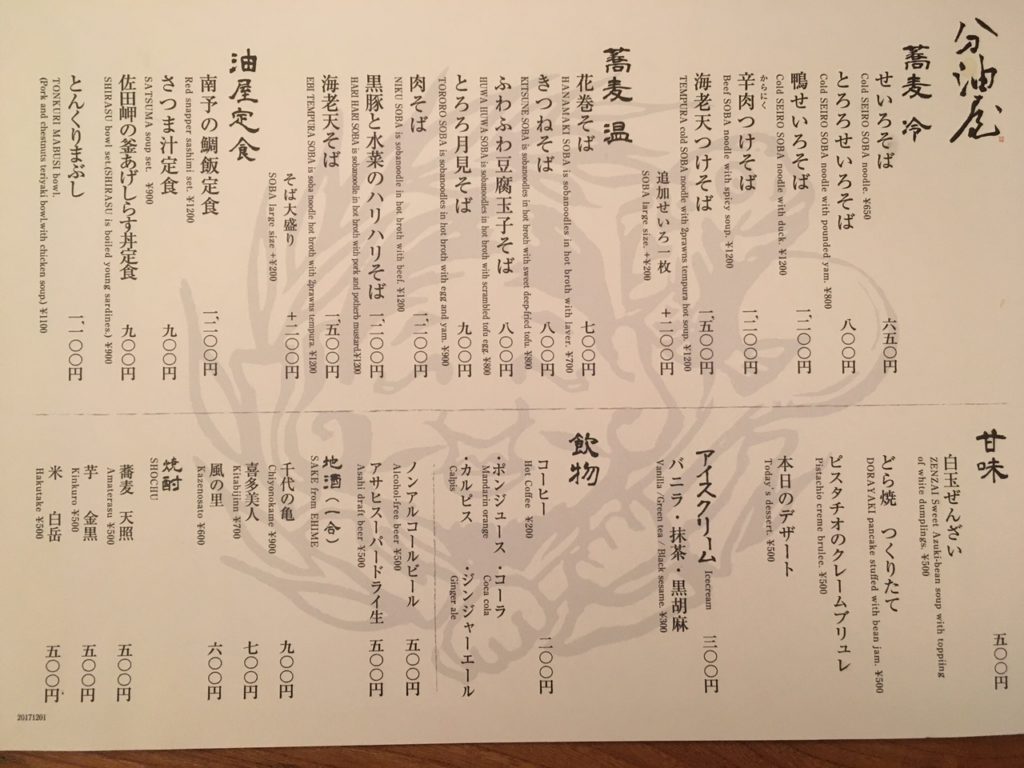 分油屋
蕎麦 冷
せいろそば 六五〇円
Cold SEIRO SOBA noodle. ¥650
とろろせいろそば 八〇〇円
Cold SEIRO SOBA noodle with pounded yam. ¥800
鴨せいろそば 一、二〇〇円
Cold SEIRO SOBA noodle with duck. ¥1200
からにく
辛肉つけそば 一、二〇〇円
Beef SOBA noodle with spicy soup. ¥1200
海老天つけそば 一、五〇〇円
TEMPURA cold SOBA noodle with 2prawns tempura hot soup. ¥1200
追加せいろ一枚 +二〇〇円
SOBA large size. +¥200
蕎麦 温
花巻そば 七〇〇円
HANAMAKI SOBA is sobanoodles in hot broth with laver. ¥700
きつねそば 八〇〇円
KITSUNE SOBA is sobanoodles in hot broth with sweet deep-fried tofu. ¥800
ふわふわ豆腐玉子そば 八〇〇円
HUWA HUWA SOBA is sobanoodles in hot broth with scrambled tofu egg. ¥800
とろろ月見そば 九〇〇円
TORORO SOBA is sobanoodles in hot broth with egg and yam. ¥900
肉そば 一、二〇〇円
NIKU SOBA is sobanoodle in hot broth with beef. ¥1200
黒豚と水菜のハリハリそば 一、二〇〇円
HARI HARI SOBA is sobanoodle in hot broth with pork and potherb mustard.¥1200
海老天そば 一、五〇〇円
EBI TEMPURA SOBA is soba noodle hot broth with 2prawns tempura. ¥1200
そば大盛り +二〇〇円
SOBA large size +¥200
油屋定食
南予の鯛飯定食 一、二〇〇円
Red snapper sashimi set. ¥1200
さつま汁定食 九〇〇円
SATSUMA soup set. ¥900
佐田岬の釜あげしらす丼定食 九〇〇円
SHIRASU bowl set.(SHIRASU is boiled young sardines.) ¥900
とんくりまぶし 一、一〇〇円
TONKURI MABUSI bowl.
(Pork and chestnuts teriyaki bowl,with chicken soup.) ¥1100
甘味 五〇〇円
白玉ぜんざい
ZENZAI Sweet Azuki-bean soup with toppiing
of white dumplings. ¥500
どら焼 つくりたて
DORAYAKI pancake stuffed with bean jam. ¥500
ピスタチオのクレームブリュレ
Pistachio creme brulee. ¥500
本日のデザート
Today's dessert. ¥500
アイスクリーム Icecream 三〇〇円
バニラ・抹茶・黒胡麻
Vanilla /Green tea / Black sesame. ¥300
飲物
コーヒー 二〇〇円
Hot Coffee ¥200
・ポンジュース ・コーラ
Mandarin orange Coca cola
・カルピス ・ジンジャーエール
Calpis Ginger ale
ノンアルコールビール 五〇〇円
Alcohol-free beer ¥500
アサヒスーパードライ生 五〇〇円
Asahi draft beer ¥500
地酒(一合)
SAKE from EHIME
千代の亀 九〇〇円
Chiyonokame ¥900
喜多美人 七〇〇円
Kitabijinn ¥700
風の里 六〇〇円
Kazenosato ¥600
焼酎
SHOCHU
蕎麦 天照 五〇〇円
Amaterasu ¥500
芋 金黒 五〇〇円
Kinkuro ¥500
米 白岳 五〇〇円
Hakutake ¥500
20171201